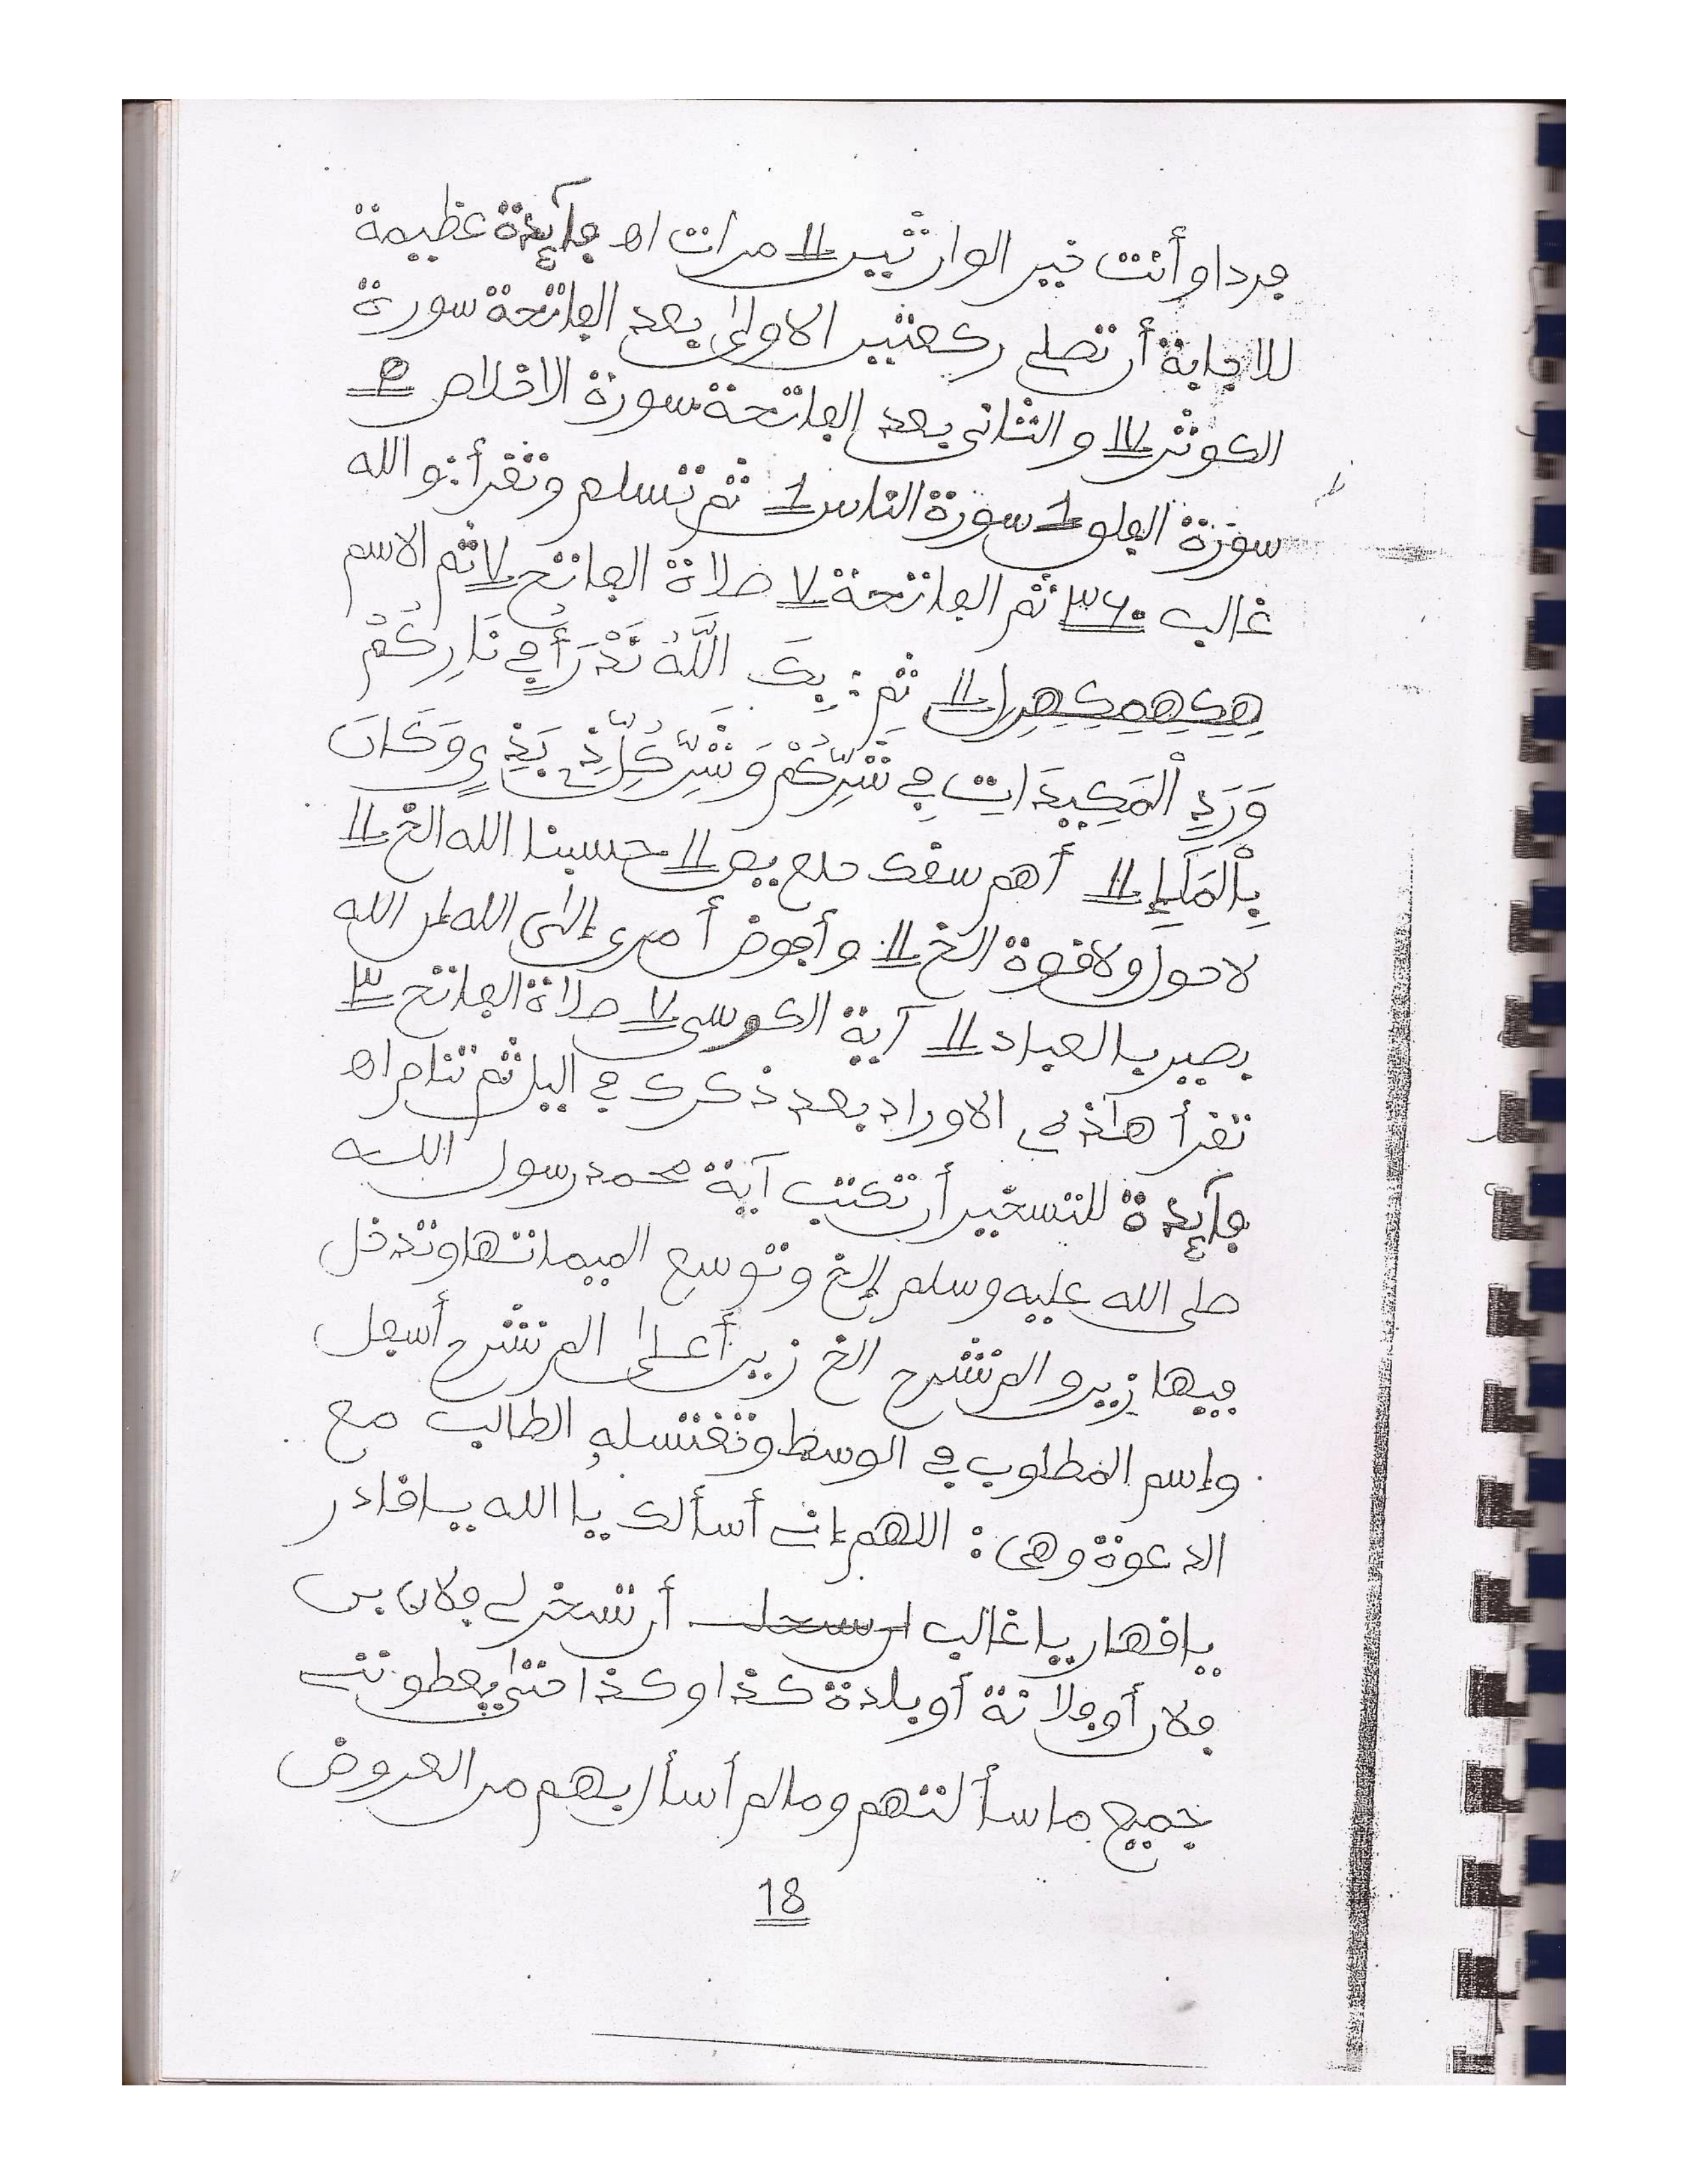 فردا وأنت خير الوارثين 11 مرات اه فآئدة عظيمة
للاجابة أن تصلي ركعتين الاولى بعد الفاتحة سورة
الكوثر 17 والثاني بعد الفاتحة سورة الاخلاص
سورة الفلق 1 سورة الناس 1 ثم تسلم وتقرأ: والله
غالب ٣٦٠ ثم الفاتحة 7 صلاة الفاتح 7 ثم الاسم
11 ثم: بِكَ اللَّهُ نَدْرَأُ فِي نَارِكُمْ
وَرَدِ الْمَكِيدَاتِ فِي شَرِّكُمْ وَشَرِّ كُلِّ ذِي بَذِيءٍ وَكَانَ
بِالْمَلَإِ 11 أهم سقك حلع يص 11 حسبنا الله الخ 11
لاحول ولا قوة الخ 11 وأفوض أمري إلى الله إن الله
بصير بالعباد 11 آية الكرسي 7 صلاة الفاتح ٣
تقرأ هاذه الاوراد بعد ذكرك في اليل ثم تنام اه
فآئدة للتسخير أن تكتب آية محمد رسول الله
صلى الله عليه وسلم إلخ وتوسع الميماتها وتدخل
فيها زين و الم نشرح الخ زين أعلى الم نشرح أسفل
وإسم المطلوب في الوسط وتغتسله الطالب مع
الدعوة وهي: اللهم إني أسألك يا الله يا قادر
يا قهار يا غالب أن تسخر لي فلان بن
فلان أو فلانة أو بلدة كذا وكذا حتى يعطونني
جميع ما سألتهم وما لم أسأل بهم من العروض
18